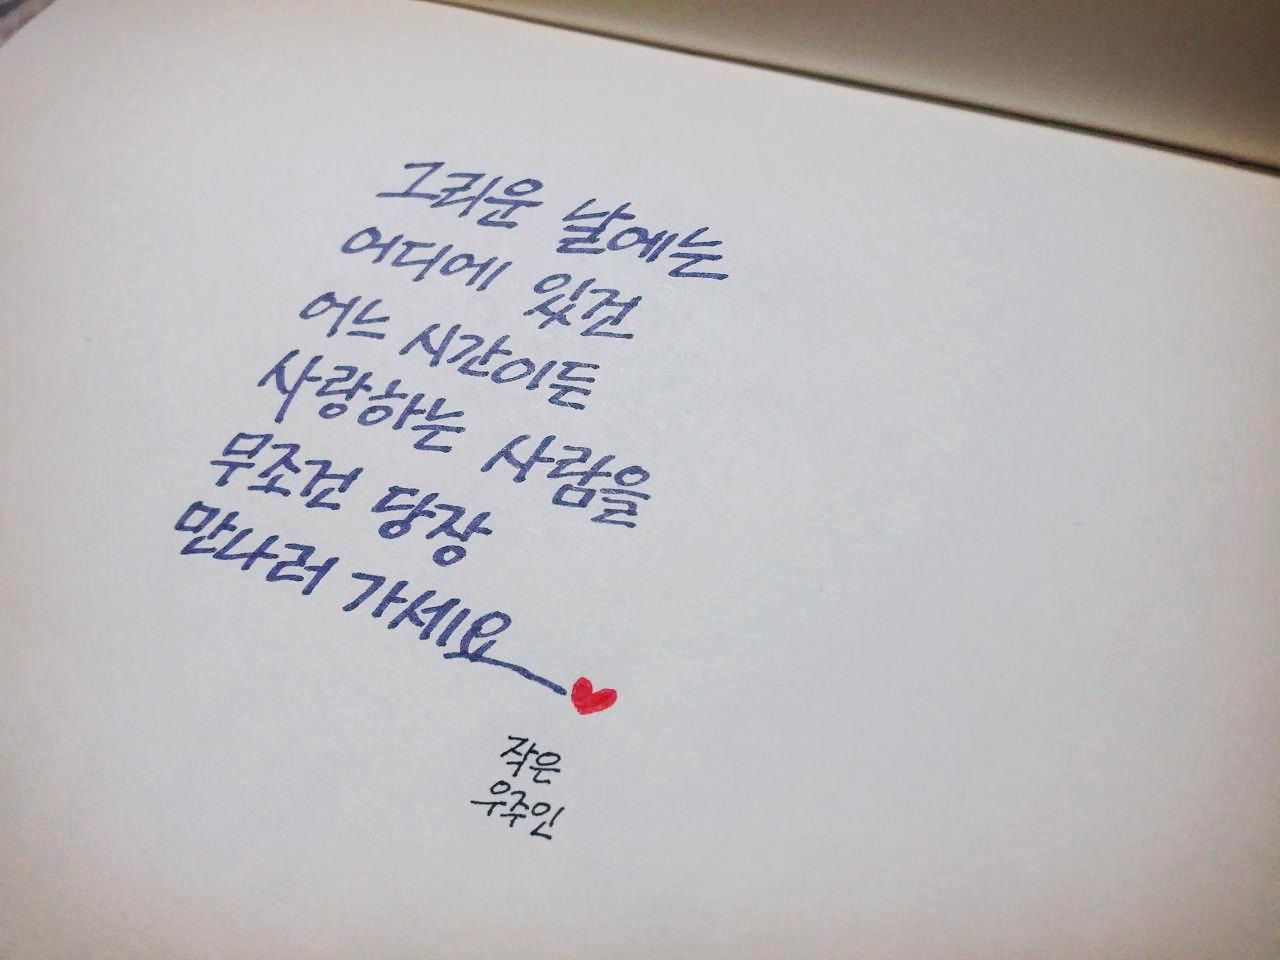 그리운 날에는
어디에 있건
어느 시간이든
사랑하는 사람을
무조건 당장
만나러 가세요
작은
우주인